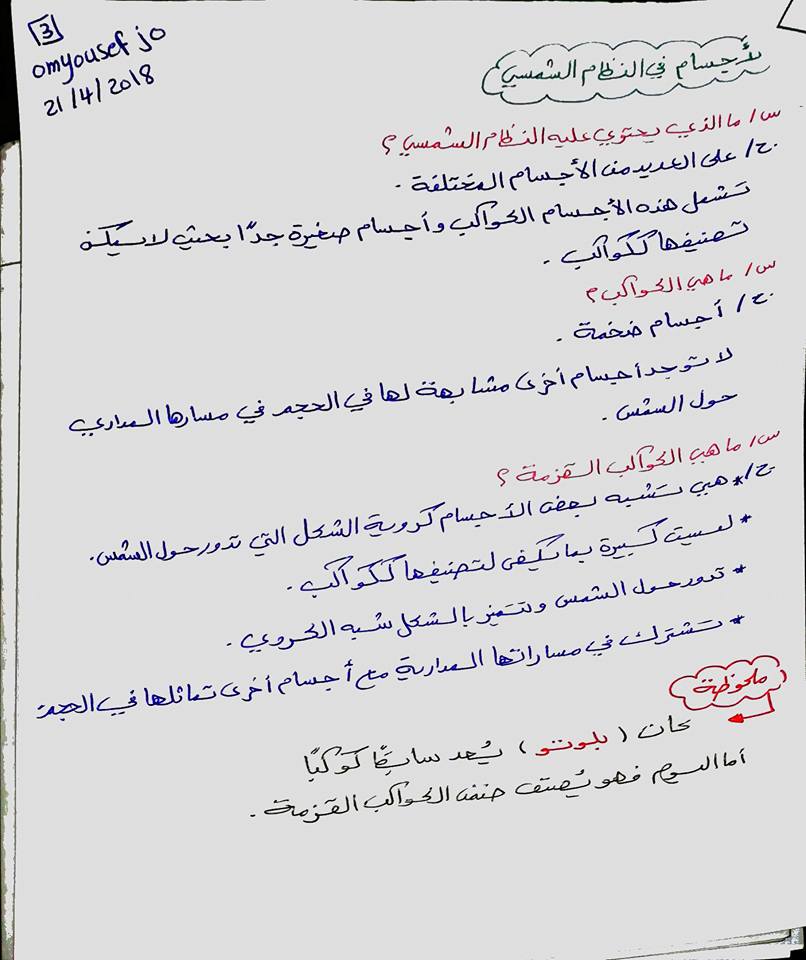 3
omyousef jo
21/4/2018
لأجسام في النظام الشمسي
س/ ما الذي يحتوي عليه النظام الشمسي؟
ج/ على العديد من الأجسام المختلفة.
تشمل هذه الأجسام الكواكب وأجسام صغيرة جدًا بحيث لا يمكن
تصنيفها ككواكب.
س/ ما هي الكواكب؟
ج/ أجسام ضخمة.
لا توجد أجسام أخرى مشابهة لها في الحجم في مسارها المداري
حول الشمس.
س/ ما هي الكواكب القزمة؟
ج/ * هي تشبه بعض الأجسام كروية الشكل التي تدور حول الشمس.
* ليست كبيرة بما يكفي لتصنيفها ككواكب.
* تدور حول الشمس وتتميز بالشكل شبه الكروي.
* تشترك في مساراتها المدارية مع أجسام أخرى تماثلها في الحجم
ملحوظة
كان (بلوتو) يُعد سابقًا كوكبًا
أما اليوم فهو يُصنف ضمن الكواكب القزمة.